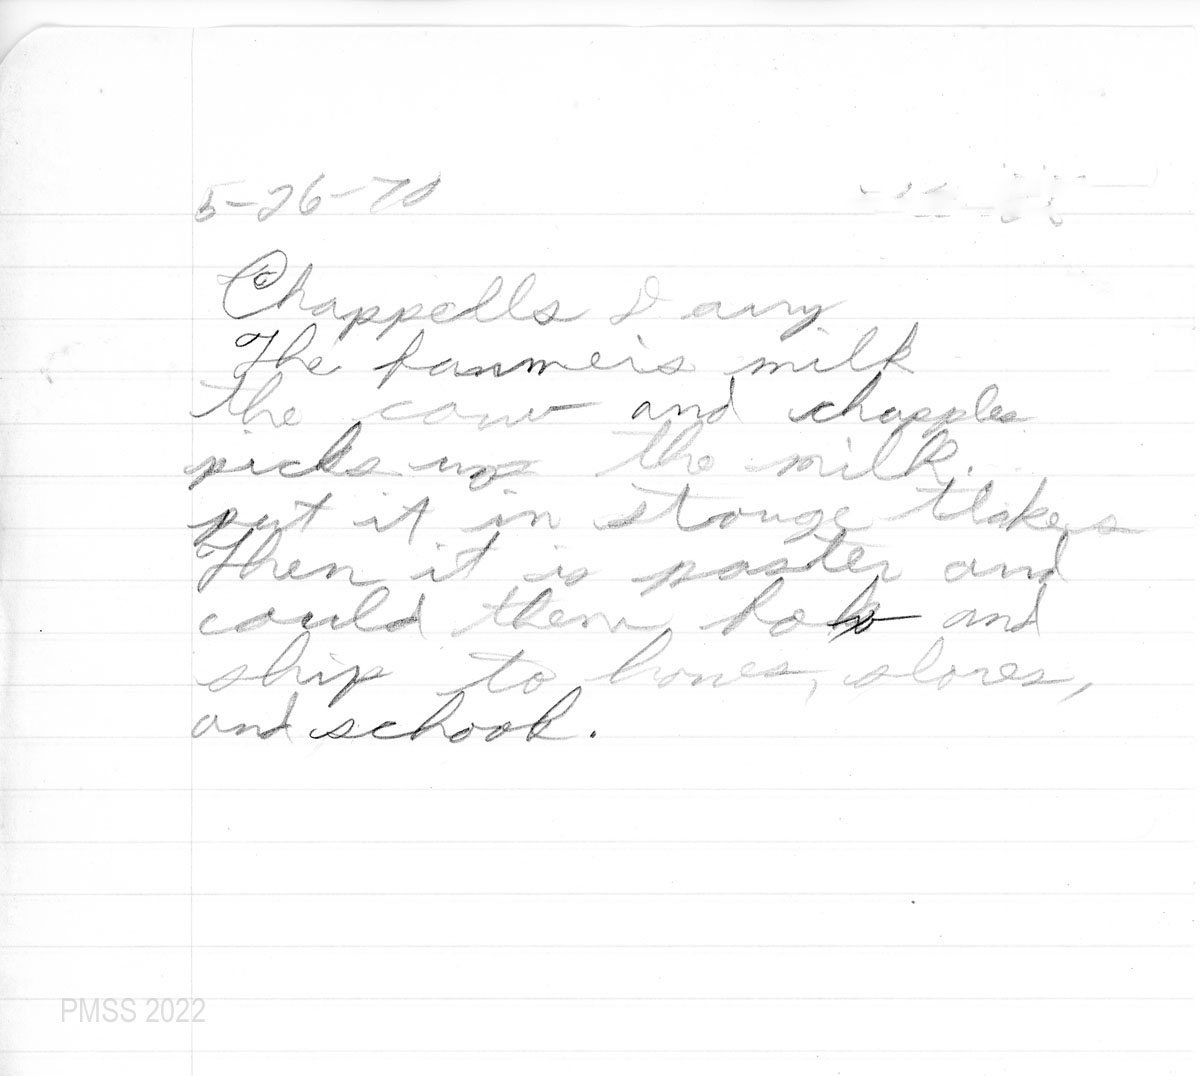 5-26-70
Chappells Dairy
The farmers milk
the cow and chapples
picks up the milk.
put it in stouge
Then it is paster and
could then and
ship to homes, stores,
and school.
PMSS 2022